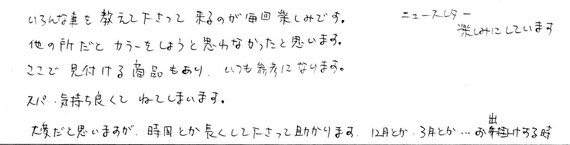 いろんな事を教えて下さって来るのが毎回楽しみです。
他の所だとカラーをしようと思わなかったと思います。
ここで見付ける商品もあり、いつも参考になります。
スパ・気持ち良くてねてしまいます。
大変だと思いますが、時間とか長くして下さって助かります。12月とか、3月とか…お出掛けする時
ニュースレター
楽しみにしています